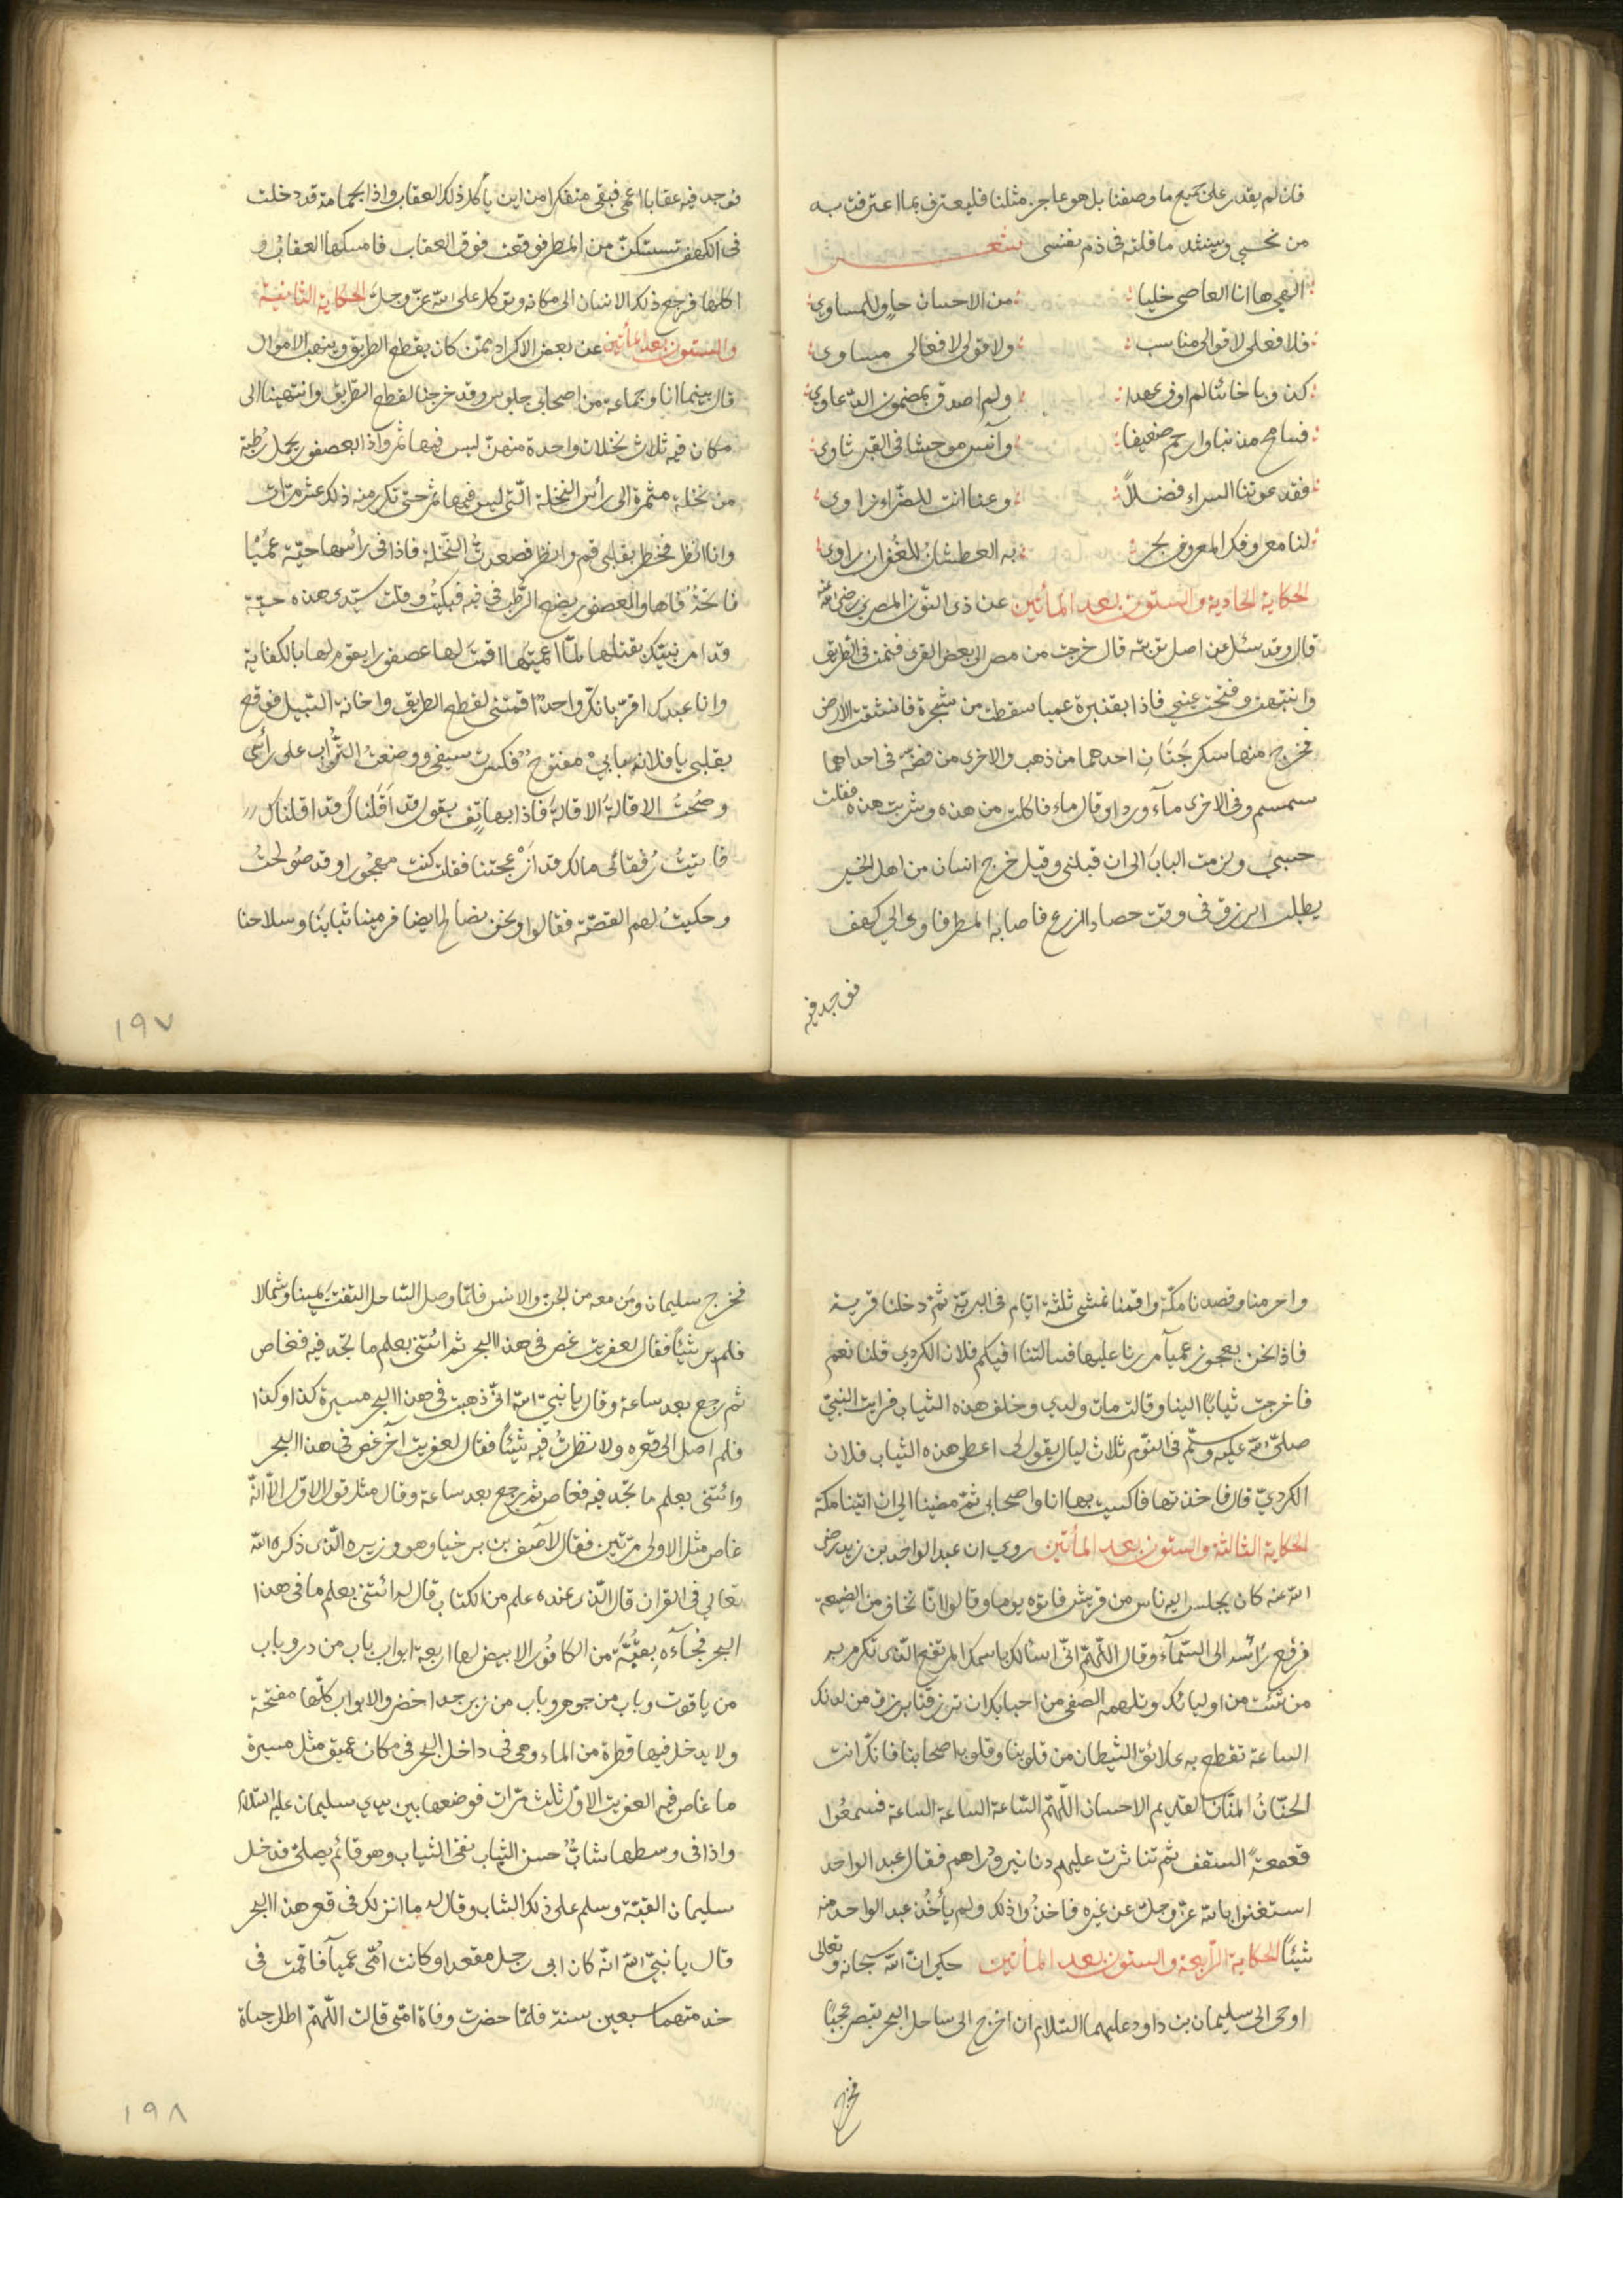 فان لم يقدر على جميع ما وصفنا بل هو عاجز مثلنا فليعترف بما اعترفت به
من نحبي وينشد ما قلته في ذم نفسى شعر
الهى ها انا العاصى خليا من الاحسان حاو للمساوي
فلا فعلى لاقوالى مناسب ولا قولى لافعالى مساوى
كذوبا خائنا لم اوف عهدا ولم اصدق بمضمون الدعاوي
فسامح مذنبا وارحم ضعيفا وآنس موحشا في القبر ثاوي
فقد عودتنا السراء فضلاً وعنا انت للضراء زاوي
لنا معروفك المعروف بحر به العطشان للغفران راوي
الحكاية الحادية والستون بعد المأتين عن ذى النون المصرى رضى الله عنه
قال وقد سئل عن اصل توبته قال خرجت من مصر الى بعض القرى فنمت فى الطريق
وانتبهت وفتحت عينى فاذا بقنبرة عميا سقطت من شجرة فانشقت الارض
فخرج منها سكرجتان احدهما من ذهب والاخرى من فضة فى احداهما
سمسم وفى الاخرى مآء ورد او قال ماء فاكلت من هذه وشربت هذه فقلت
حسبى ولزمت الباب الى ان قبلنى وقيل خرج انسان من اهل الخير
يطلب الرزق فى وقت حصاد الزرع فاصابه المطر فاوى الي كهف
فوجد فيه
فوجد فيه عقابا اعمى فبقى متفكرا من اين يأكل ذلك العقاب واذا بحمامة قد دخلت
فى الكهف تستكن من المطر فوقعت فوق العقاب فامسكها العقاب و
اكلها فرجع ذلك الانسان الى مكانه وتوكل على الله عز وجل الحكاية الثانية
والستون بعد المأتين عن بعض الاكراد ممن كان يقطع الطريق وينهب الاموال
قال بينما انا وجماعة من اصحابى جلوس وقد خرجنا لقطع الطريق وانتهينا الى
مكان فيه ثلاث نخلات واحدة منهن ليس فيها ثمر واذا بعصفور يحمل رطبة
من نخلة مثمرة الى رأس النخلة التى ليس فيها ثمر حتى تكرر منه ذلك عشر مرات
وانا انظر فخطر بقلبى قم وانظر فصعدت النخلة فاذا فى رأسها حية عميا
فاتحة فاها والعصفور يضع الرطب فى فيه فبكيت وقلت سيدى هذه حية
قد امر نبيك بقتلها لما اعميتها اقمت لها عصفورا يقوم لها بالكفاية
وانا عبدك اقر بانك واحد اقمتنى لقطع الطريق واخافة السبيل فوقع
بقلبى يا فلان بابي مفتوح فكسرت سيفى ووضعت التراب على رأسى
وصحت الاقالة الاقالة فاذا بهاتف يقول قد اقلناك قد اقلناك
فاتيت رفقائى مالك قد ازعجتنا فقلت كنت مهجورا وقد صولحت
وحكيت لهم القصة فقالوا ونحن نصالح ايضا فرمينا ثيابنا وسلاحنا
١٩٧
واحرمنا وقصدنا مكة واقمنا نمشى ثلثة ايام فى البرية ثم دخلنا قرية
فاذا نحن بعجوز عميآ مررنا عليها فسالتنا افيكم فلان الكردي قلنا نعم
فاخرجت ثيابا الينا وقالت مات ولدي وخلف هذه الثياب فرايت النبى
صلى الله عليه وسلم فى النوم ثلاث ليال يقول لى اعطى هذه الثياب فلان
الكردي قال فاخذتها فاكتسيت بها انا واصحابى ثم مضينا الى ان اتينا مكة
الحكاية الثالثة والستون بعد المأتين روي ان عبد الواحد بن زيد رضى
الله عنه كان يجلس اليه ناس من قريش فاتوه يوما وقالوا انا نخاف من الضيعة
فرفع رأسه الى السمآء وقال اللهم انى اسئلك باسمك المرتفع الذى تكرم به
من شئت من اوليائك وتلهمه الصفى من احبابك ان ترزقنا برزق من لدنك
الساعة تقطع به علائق الشيطان من قلوبنا وقلوب اصحابنا فانك انت
الحنان المنان القديم الاحسان اللهم الساعة الساعة الساعة فسمعوا
قعقعة السقف ثم تناثرت عليهم دنانير ودراهم فقال عبد الواحد
استغنوا بالله عز وجل عن غيره فاخذوا ذلك ولم يأخذ عبد الواحد منه
شيئاً الحكاية الرابعة والستون بعد المأتين حكي ان الله سبحانه وتعالى
اوحى الى سليمان بن داود عليهما السلام ان اخرج الى ساحل البحر تبصر عجبا
فخرج
فخرج سليمان ومن معه من الجن والانس فلما وصل الساحل التفت يمينا وشمالا
فلم ير شيئا فقال لعفريت غص فى هذا البحر ثم ائتنى بعلم ما تجد فيه فغاص
ثم رجع بعد ساعة وقال يا نبى الله انى ذهبت فى هذا البحر مسيرة كذا وكذا
فلم اصل الى قعره ولا نظرت فيه شيئا فقال لعفريت آخر غص فى هذا البحر
وائتنى بعلم ما تجد فيه فغاص ثم رجع بعد ساعة وقال مثل قول الاول الا انه
غاص مثل الاولى مرتين فقال لآصف بن برخيا وهو وزيره الذى ذكره الله
تعالى فى القران قال الذى عنده علم من الكتاب قال له ائتنى بعلم ما فى هذا
البحر فجآءه بقبة من الكافور الابيض لها اربعة ابواب باب من در وباب
من ياقوت وباب من جوهر وباب من زبرجد اخضر والابواب كلها مفتحة
ولا يدخل فيها قطرة من الماء وهى فى داخل البحر فى مكان عميق مثل مسيرة
ما غاص فيه العفريت الاول ثلث مرات فوضعها بين يدي سليمان عليه السلام
واذا فى وسطها شاب حسن الثياب نقى الثياب وهو قائم يصلى فدخل
سليمان القبة وسلم على ذلك الشاب وقال له ما انزلك فى قعر هذا البحر
قال يا نبى الله انه كان ابى رجل مقعدا وكانت امى عميآ فاقمت فى
خدمتهما سبعين سنة فلما حضرت وفاة امى قالت اللهم اطل حياة
١٩٨